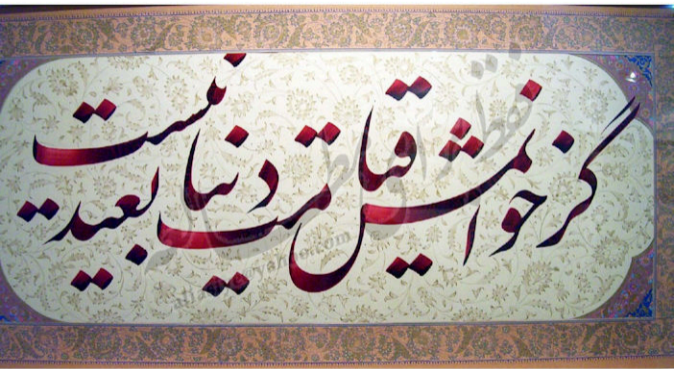 گر خوانمش قیامت دنیا بعید نیست